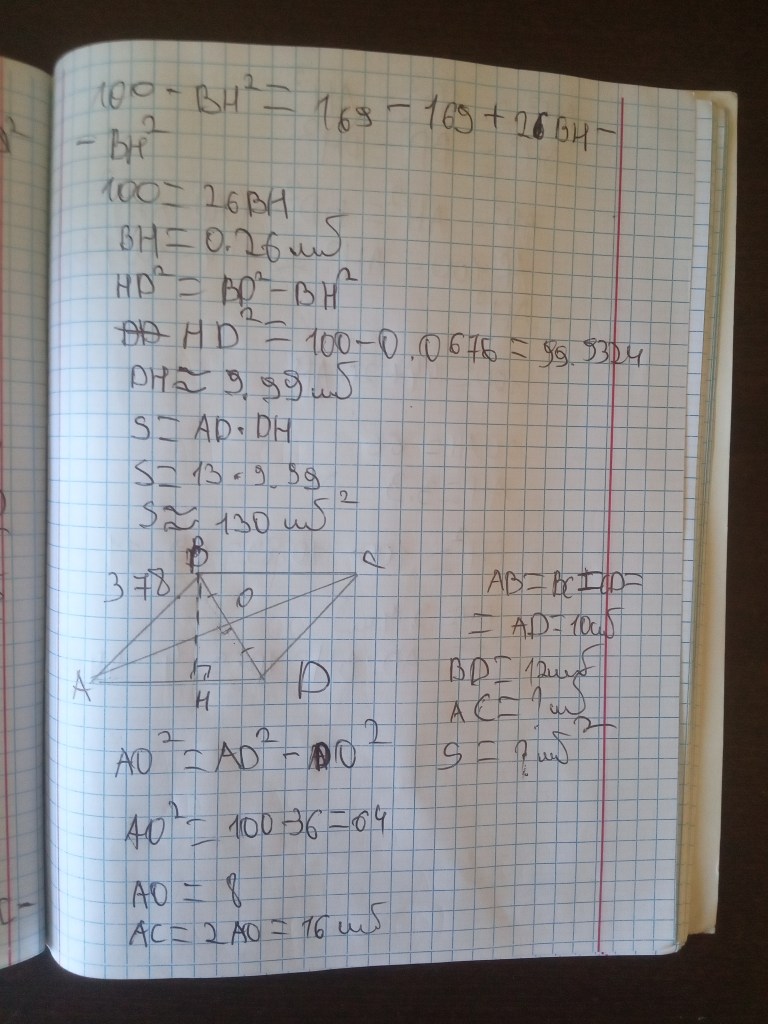 100 - BH² = 169 - 169 + 26BH -
- BH²
100 = 26BH
BH = 0.26 மб
HD² = BD² - BH²
HD² = 100 - 0.0676 = 99.9324
DH ≈ 9.99 մб
S = AD · DH
S = 13 · 9.99
S ≈ 130 մб²
378
B
C
O
A
H
D
AB = BC = CD =
= AD = 10մб
BD = 12մб
AC = ? մб
S = ? մб²
AO² = AD² - DO²
AO² = 100-36 = 64
AO = 8
AC = 2AO = 16 մб